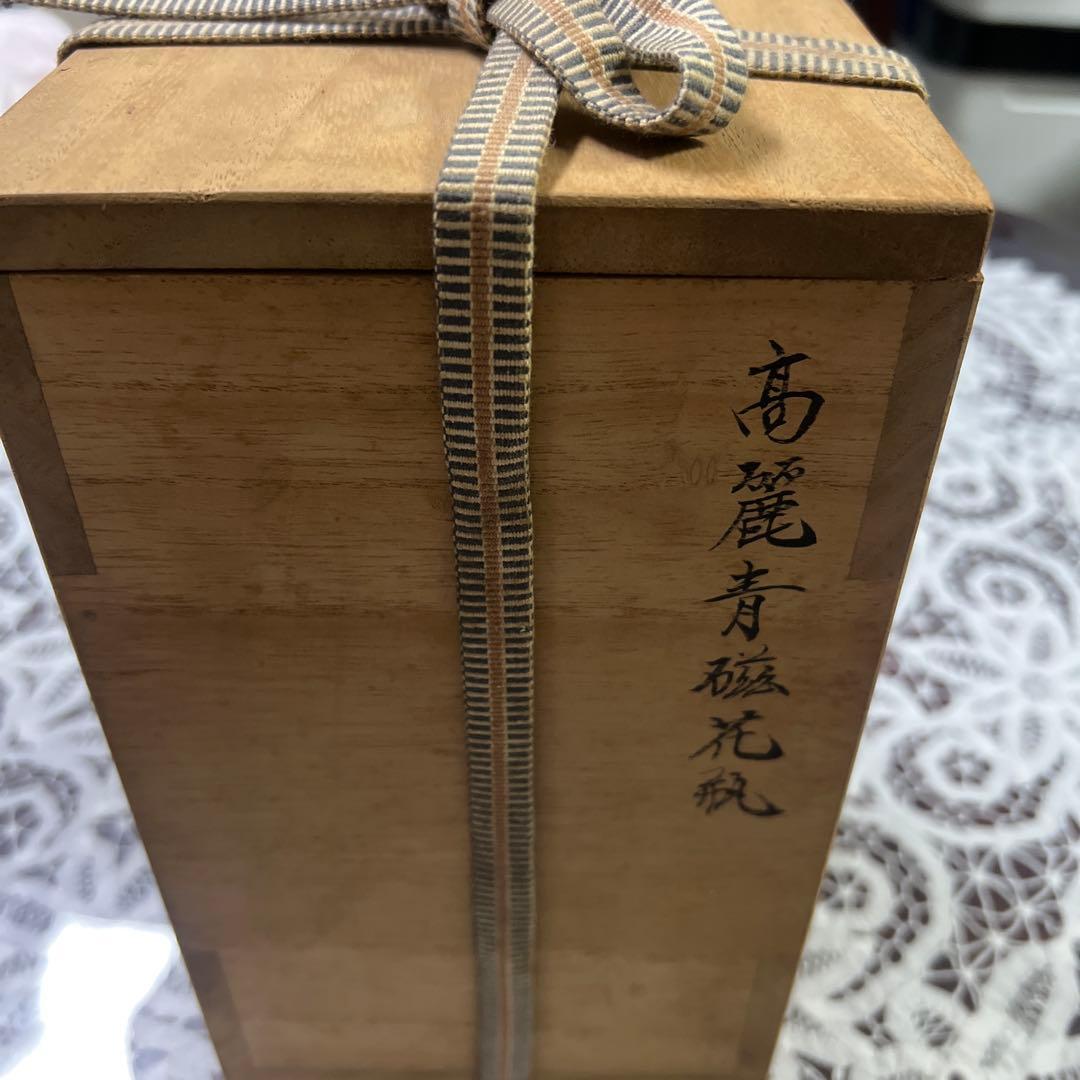 高麗青磁花瓶